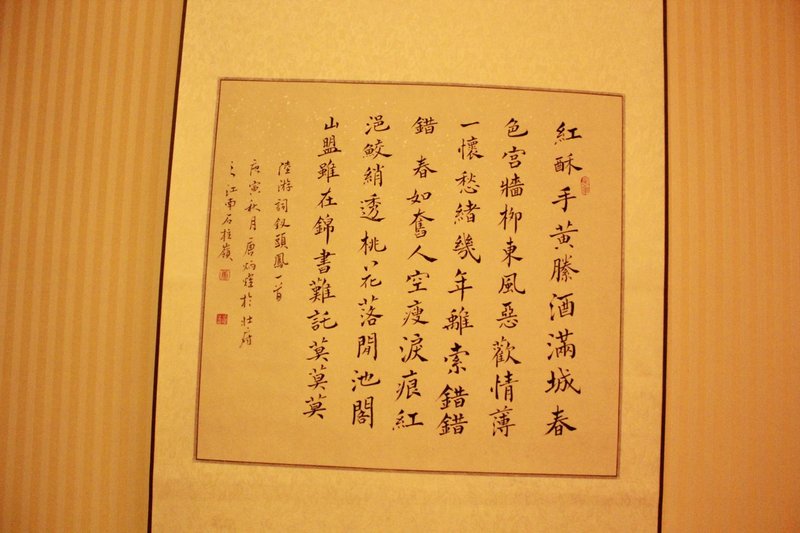 紅酥手黃滕酒滿城春
色宮牆柳東風惡歡情薄
一懷愁緒幾年離索錯錯
錯 春如舊人空瘦淚痕紅
浥鮫綃透桃花落閒池閣
山盟雖在錦書難託莫莫莫
陸游詞釵頭鳳一首
庚寅秋月唐炳煌於壯府
之江南石柱嶺